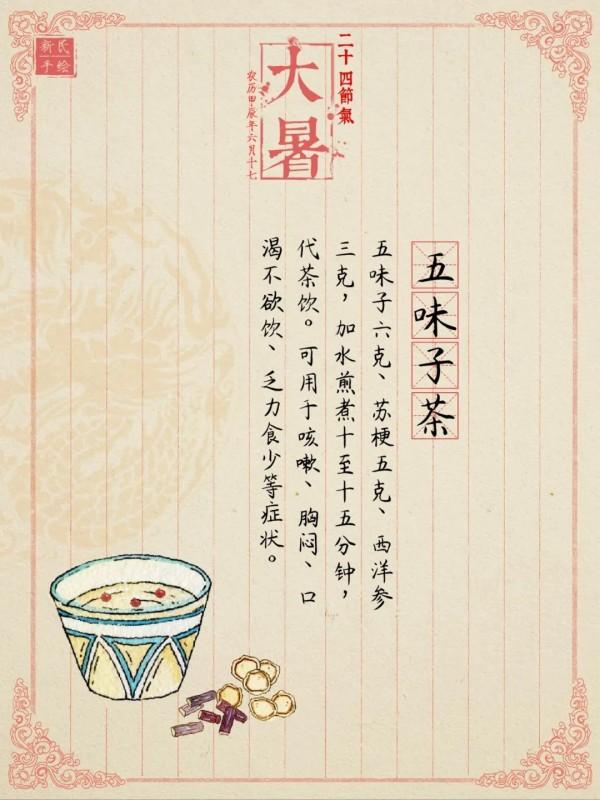 新氏
手绘
二十四節氣
大暑
农历甲辰年六月十七
五味子茶
五味子六克、苏梗五克、西洋参
三克，加水煎煮十至十五分钟，
代茶饮。可用于咳嗽、胸闷、口
渴不欲饮、乏力食少等症状。